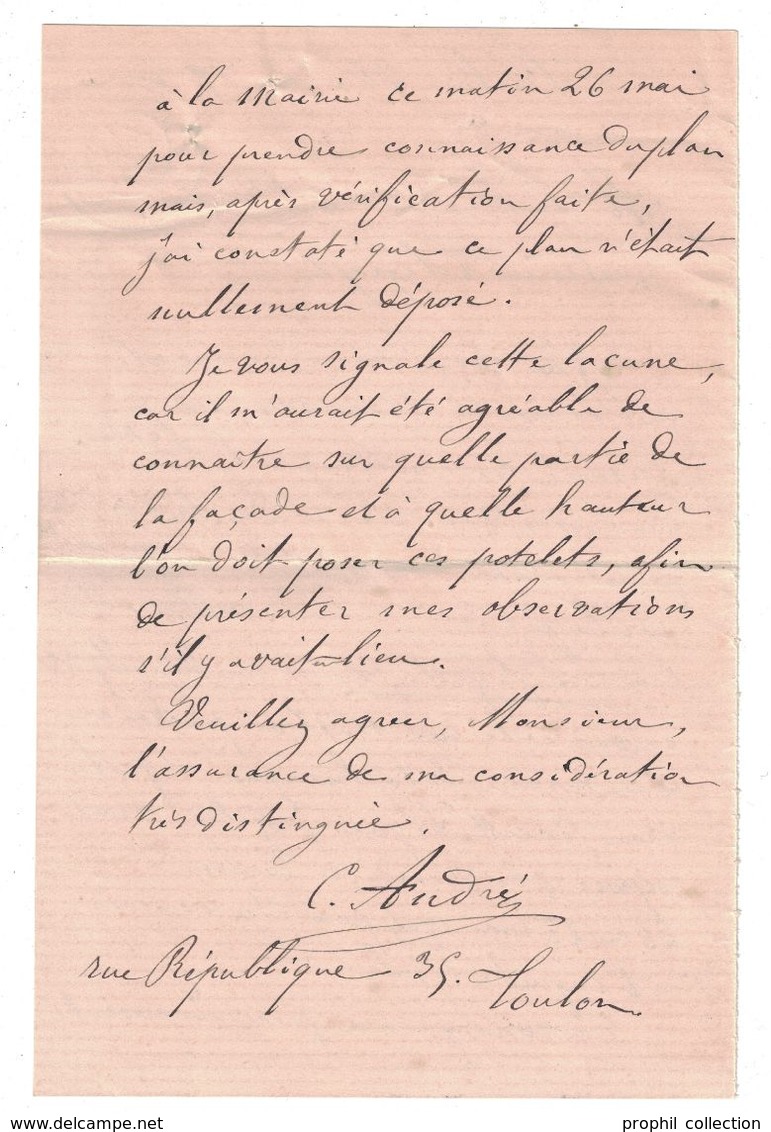 à la Mairie ce matin 26 mai
pour prendre connaissance du plan
mais, après vérification faite,
j'ai constaté que ce plan n'était
nullement déposé.
Je vous signale cette lacune,
car il m'aurait été agréable de
connaître sur quelle partie de
la façade et à quelle hauteur
l'on doit poser ces potelets, afin
de présenter mes observations
s'il y avait lieu.
Veuillez agréer, Monsieur,
l'assurance de ma considération
très distinguée.
C. André
rue République 35. Toulon
prophil collection